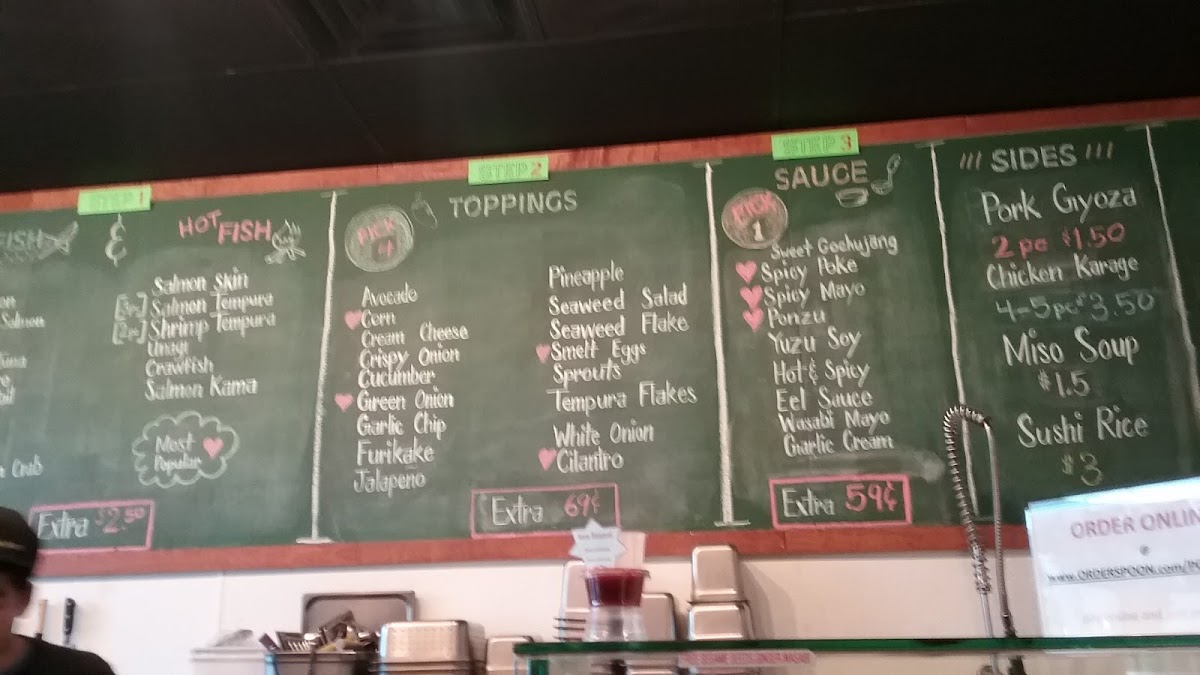 STEP 1
FISH
&
HOT FISH
Salmon Skin
Salmon Tempura
Shrimp Tempura
Unagi
Crawfish
Salmon Kama
Most
Popular
Salmon
Crab
Extra $2.50
STEP 2
PICK
4
TOPPINGS
Avocado
Corn
Cream Cheese
Crispy Onion
Cucumber
Green Onion
Garlic Chip
Furikake
Jalapeño
Pineapple
Seaweed Salad
Seaweed Flake
Smelt Eggs
Sprouts
Tempura Flakes
White Onion
Cilantro
Extra 69¢
STEP 3
SAUCE
PICK
1
Sweet Gochujang
Spicy Poke
Spicy Mayo
Ponzu
Yuzu Soy
Hot & Spicy
Eel Sauce
Wasabi Mayo
Garlic Cream
Extra 59¢
!!! SIDES !!!
Pork Gyoza
2 pc $1.50
Chicken Karage
4-5pc $3.50
Miso Soup
$1.5
Sushi Rice
$3
ORDER ONLIN
@
www.ORDERSPOON.com/P